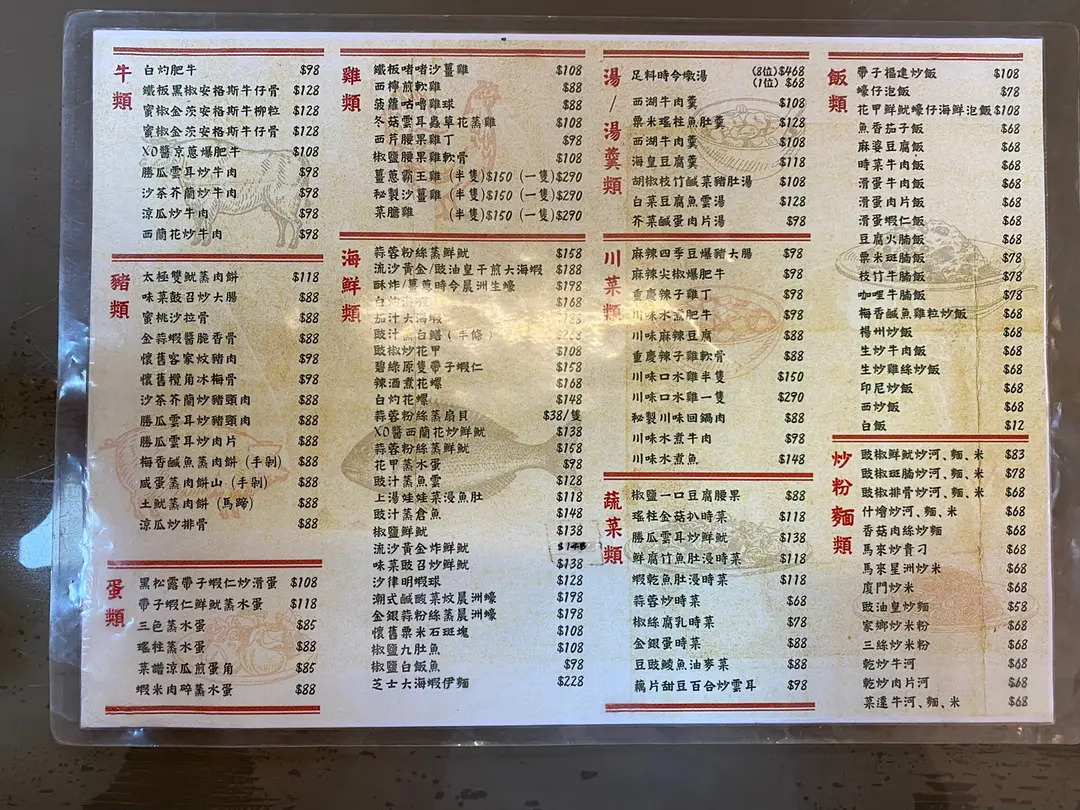 牛類
白灼肥牛 $98
鐵板黑椒安格斯牛仔骨 $128
蜜椒金茨安格斯牛柳粒 $128
蜜椒金茨安格斯牛仔骨 $128
XO醬京蔥爆肥牛 $108
勝瓜雲耳炒牛肉 $98
沙茶芥蘭炒牛肉 $98
涼瓜炒牛肉 $98
西蘭花炒牛肉 $98
豬類
太極雙魷蒸肉餅 $118
味菜豉召炒大腸 $88
蜜桃沙拉骨 $88
金蒜蝦醬脆香骨 $88
懷舊客家炆豬肉 $98
懷舊欖角冰梅骨 $98
沙茶芥蘭炒豬頸肉 $88
勝瓜雲耳炒豬頸肉 $88
勝瓜雲耳炒肉片 $88
梅香鹹魚蒸肉餅(手剁) $88
咸蛋蒸肉餅山(手剁) $88
土魷蒸肉餅(馬蹄) $88
涼瓜炒排骨 $88
蛋類
黑松露帶子蝦仁炒滑蛋 $108
帶子蝦仁鮮魷蒸水蛋 $118
三色蒸水蛋 $85
瑤柱蒸水蛋 $88
菜譜涼瓜煎蛋角 $85
蝦米肉碎蒸水蛋 $88
雞類
鐵板啫啫沙薑雞 $108
西檸煎軟雞 $88
菠蘿咕嚕雞球 $88
冬菇雲耳蟲草花蒸雞 $108
西芹腰果雞丁 $98
椒鹽腰果雞軟骨 $108
薑蔥霸王雞 (半隻)$150 (一隻)$290
秘製沙薑雞 (半隻)$150 (一隻)$290
菜膽雞 (半隻)$150 (一隻)$290
海鮮類
蒜蓉粉絲蒸鮮魷 $158
流沙黃金/豉油皇干煎大海蝦 $188
酥炸/薑蔥時令晨洲生蠔 $198
白灼海蝦 $168
茄汁大海蝦 $188
豉汁蒸白鱔(半條)
豉椒炒花甲 $108
碧綠原隻帶子蝦仁 $158
辣酒煮花螺 $168
白灼花螺 $148
蒜蓉粉絲蒸扇貝 $38/隻
XO醬西蘭花炒鮮魷 $138
蒜蓉粉絲蒸鮮魷 $158
花甲蒸水蛋 $98
豉汁蒸魚雲 $128
上湯娃娃菜浸魚肚 $118
豉汁蒸倉魚 $148
椒鹽鮮魷 $138
流沙黃金炸鮮魷 $148
味菜豉召炒鮮魷 $138
沙律明蝦球 $128
潮式鹹酸菜炆晨洲蠔 $198
金銀蒜粉絲蒸晨洲蠔 $198
懷舊粟米石斑塊 $108
椒鹽九肚魚 $108
椒鹽白飯魚 $98
芝士大海蝦伊麵 $228
湯/湯羹類
足料時令燉湯 (8位)$468
(1位) $68
西湖牛肉羹 $108
粟米瑤柱魚肚羹 $128
西湖牛肉羹 $108
海皇豆腐羹 $118
胡椒枝竹鹹菜豬肚湯 $108
白菜豆腐魚雲湯 $128
芥菜鹹蛋肉片湯 $98
川菜類
麻辣四季豆爆豬大腸 $98
麻辣尖椒爆肥牛 $98
重慶辣子雞丁 $98
川味水煮肥牛 $98
川味麻辣豆腐 $88
重慶辣子雞軟骨 $88
川味口水雞半隻 $150
川味口水雞一隻 $290
秘製川味回鍋肉 $88
川味水煮牛肉 $98
川味水煮魚 $148
蔬菜類
椒鹽一口豆腐腰果 $88
瑤柱金菇扒時菜 $118
勝瓜雲耳炒鮮魷 $138
鮮腐竹魚肚浸時菜 $118
蝦乾魚肚浸時菜 $118
蒜蓉炒時菜 $68
椒絲腐乳時菜 $78
金銀蛋時菜 $88
豆豉鯪魚油麥菜 $88
藕片甜豆百合炒雲耳 $98
飯類
帶子福建炒飯 $108
蠔仔泡飯 $78
花甲鮮魷蠔仔海鮮泡飯 $108
魚香茄子飯 $68
麻婆豆腐飯 $68
時菜牛肉飯 $68
滑蛋牛肉飯 $68
滑蛋肉片飯 $68
滑蛋蝦仁飯 $68
豆腐火腩飯 $68
粟米斑腩飯 $78
枝竹牛腩飯 $78
咖哩牛腩飯 $78
梅香鹹魚雞粒炒飯 $68
楊州炒飯 $68
生炒牛肉飯 $68
生炒雞絲炒飯 $68
印尼炒飯 $68
西炒飯 $68
白飯 $12
炒粉麵類
豉椒鮮魷炒河、麵、米 $83
豉椒斑腩炒河、麵、米 $78
豉椒排骨炒河、麵、米 $68
什燴炒河、麵、米 $68
香菇肉絲炒麵 $68
馬來炒貴刁 $68
馬來星洲炒米 $68
廈門炒米 $68
豉油皇炒麵 $58
家鄉炒米粉 $68
三絲炒米粉 $68
乾炒牛河 $68
乾炒肉片河 $68
菜遠牛河、麵、米 $68